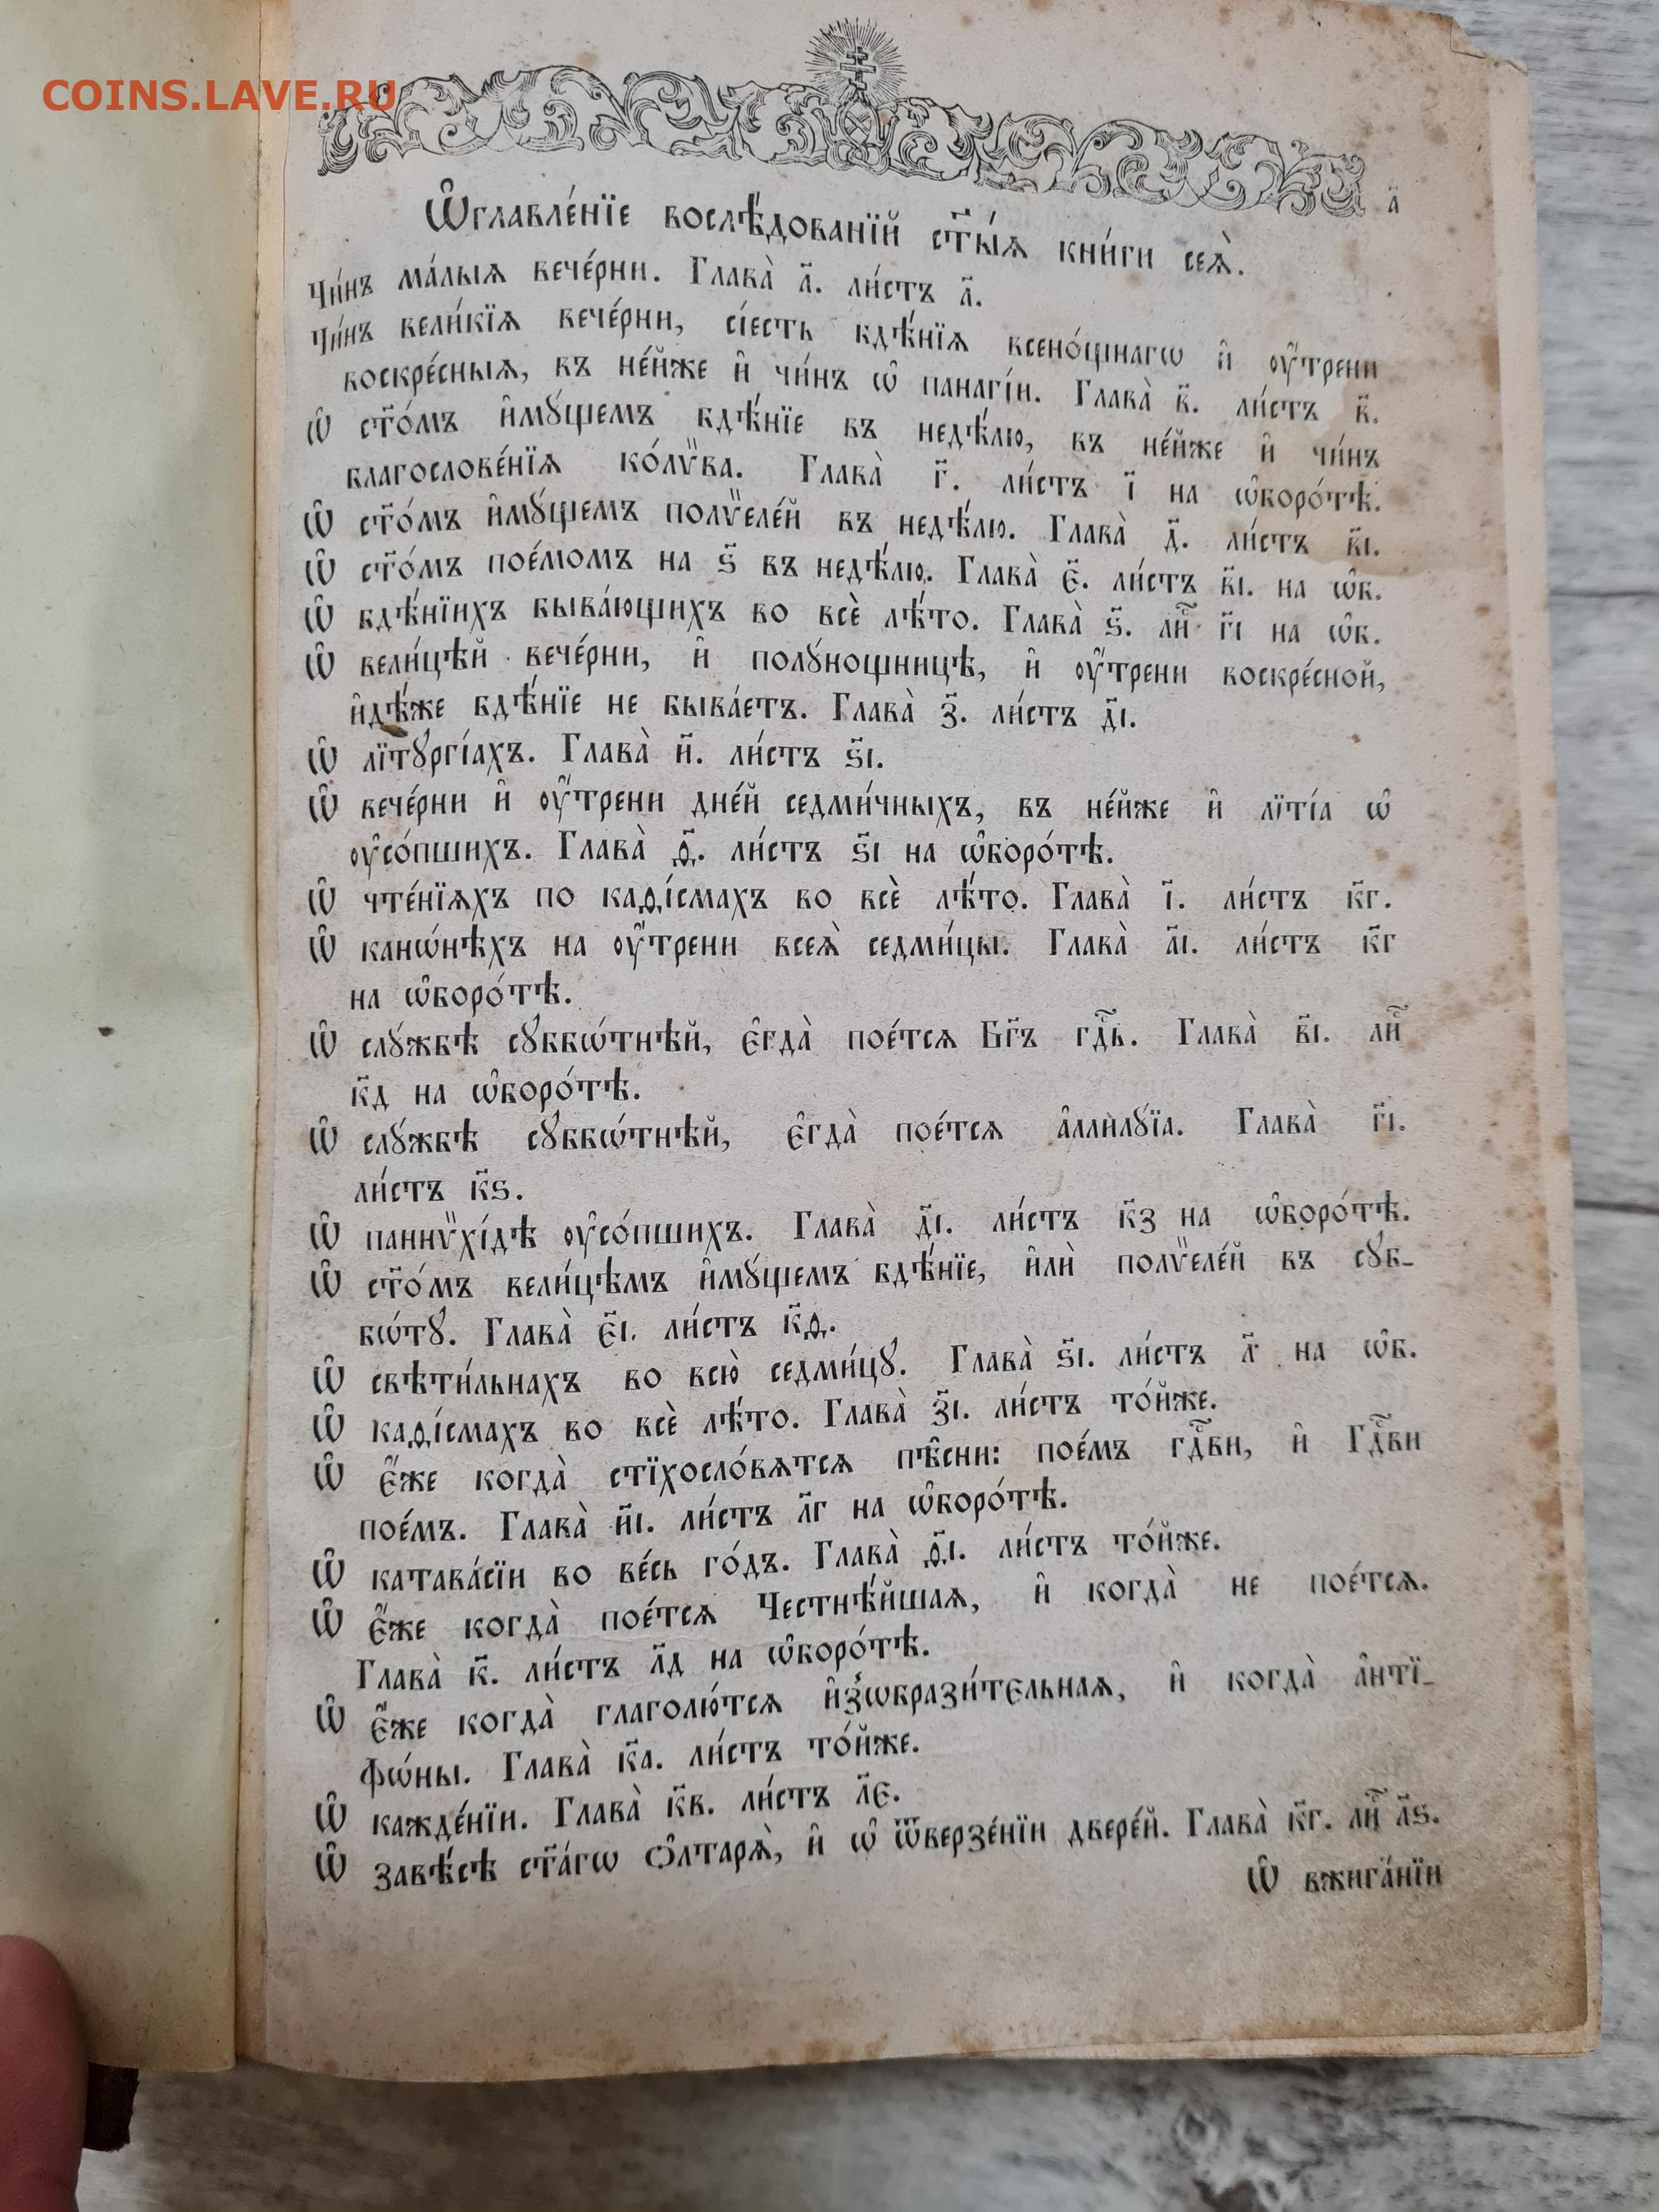 COINS.LAVE.RU
а҃
Ѡ҆главле́нїе вослѣ́дованїй ст҃ы́ѧ кни́ги сеѧ̀.
Чи́нъ ма́лыѧ вече́рни. Глава̀ а҃. ли́стъ а҃.
Чи́нъ вели́кїѧ вече́рни, сі́есть бдѣ́нїѧ всено́щнагѡ и҆ оу҆́трени
воскре́сныѧ, въ не́йже и҆ чи́нъ ѡ҆ панагі́и. Глава̀ в҃. ли́стъ в҃.
Ѡ҆ ст҃о́мъ и҆мꙋ́щемъ бдѣ́нїе въ недѣ́лю, въ не́йже и҆ чи́нъ
благослове́нїѧ ко́лѷва. Глава̀ г҃. ли́стъ і҃ на ѡ҆боро́тѣ.
Ѡ҆ ст҃о́мъ и҆мꙋ́щемъ полѷеле́й въ недѣ́лю. Глава̀ д҃. ли́стъ в҃і.
Ѡ҆ ст҃о́мъ пое́момъ на ѕ҃ въ недѣ́лю. Глава̀ є҃. ли́стъ в҃і. на ѡ҆б.
Ѡ҆ бдѣ́нїихъ быва́ющихъ во всѐ лѣ́то. Глава̀ ѕ҃. лиⷭ҇ г҃і на ѡ҆б.
Ѡ҆ вели́цѣй вече́рни, и҆ полꙋнощницѣ, и҆ оу҆́трени воскре́сной,
и҆дѣ́же бдѣ́нїе не быва́етъ. Глава̀ з҃. ли́стъ д҃і.
Ѡ҆ лїтꙋргі́ахъ. Глава̀ и҃. ли́стъ ѕ҃і.
Ѡ҆ вече́рни и҆ оу҆́трени дне́й седми́чныхъ, въ не́йже и҆ лїті́а ѡ҆
оу҆со́пшихъ. Глава̀ ѳ҃. ли́стъ ѕ҃і на ѡ҆боро́тѣ.
Ѡ҆ чте́нїѧхъ по каѳі́смахъ во всѐ лѣ́то. Глава̀ і҃. ли́стъ к҃г.
Ѡ҆ канѡ́нѣхъ на оу҆́трени всеѧ̀ седми́цы. Глава̀ а҃і. ли́стъ к҃г
на ѡ҆боро́тѣ.
Ѡ҆ слꙋ́жбѣ сꙋббѡ́тнѣй, є҆гда̀ пое́тсѧ Бг҃ъ гдⷭ҇ь. Глава̀ в҃і. лиⷭ҇
к҃д на ѡ҆боро́тѣ.
Ѡ҆ слꙋ́жбѣ сꙋббѡ́тнѣй, є҆гда̀ пое́тсѧ а҆ллилꙋ́їа. Глава̀ г҃і.
ли́стъ к҃ѕ.
Ѡ҆ паннѷхі́дѣ оу҆со́пшихъ. Глава̀ д҃і. ли́стъ к҃з на ѡ҆боро́тѣ.
Ѡ҆ ст҃о́мъ вели́цѣмъ и҆мꙋ́щемъ бдѣ́нїе, и҆лѝ полѷеле́й въ сꙋб-
бѡ́тꙋ. Глава̀ є҃і. ли́стъ к҃ѳ.
Ѡ҆ свѣти́льнахъ во всю̀ седми́цꙋ. Глава̀ ѕ҃і. ли́стъ л҃ на ѡ҆б.
Ѡ҆ каѳі́смахъ во всѐ лѣ́то. Глава̀ з҃і. ли́стъ то́йже.
Ѡ҆ є҆́же когда̀ стїхосло́вѧтсѧ пѣ̑сни: пое́мъ гдⷭ҇ви, и҆ Гдⷭ҇ви
пое́мъ. Глава̀ и҃і. ли́стъ л҃г на ѡ҆боро́тѣ.
Ѡ҆ катава́сїи во ве́сь го́дъ. Глава̀ ѳ҃і. ли́стъ то́йже.
Ѡ҆ є҆́же когда̀ пое́тсѧ Честнѣ́йшаѧ, и҆ когда̀ не пое́тсѧ.
Глава̀ к҃. ли́стъ л҃д на ѡ҆боро́тѣ.
Ѡ҆ є҆́же когда̀ глаголю́тсѧ и҆з̾ѡбрази́тєльнаѧ, и҆ когда̀ а҆нтї-
фѡ́ны. Глава̀ к҃а. ли́стъ то́йже.
Ѡ҆ кажде́нїи. Глава̀ к҃в. ли́стъ л҃є.
Ѡ҆ завѣ́сѣ ст҃а́гѡ ѻ҆лтарѧ̀, и҆ ѡ҆ ѿверзе́нїи двере́й. Глава̀ к҃г. лиⷭ҇ л҃ѕ.
Ѡ҆ вжига́нїи